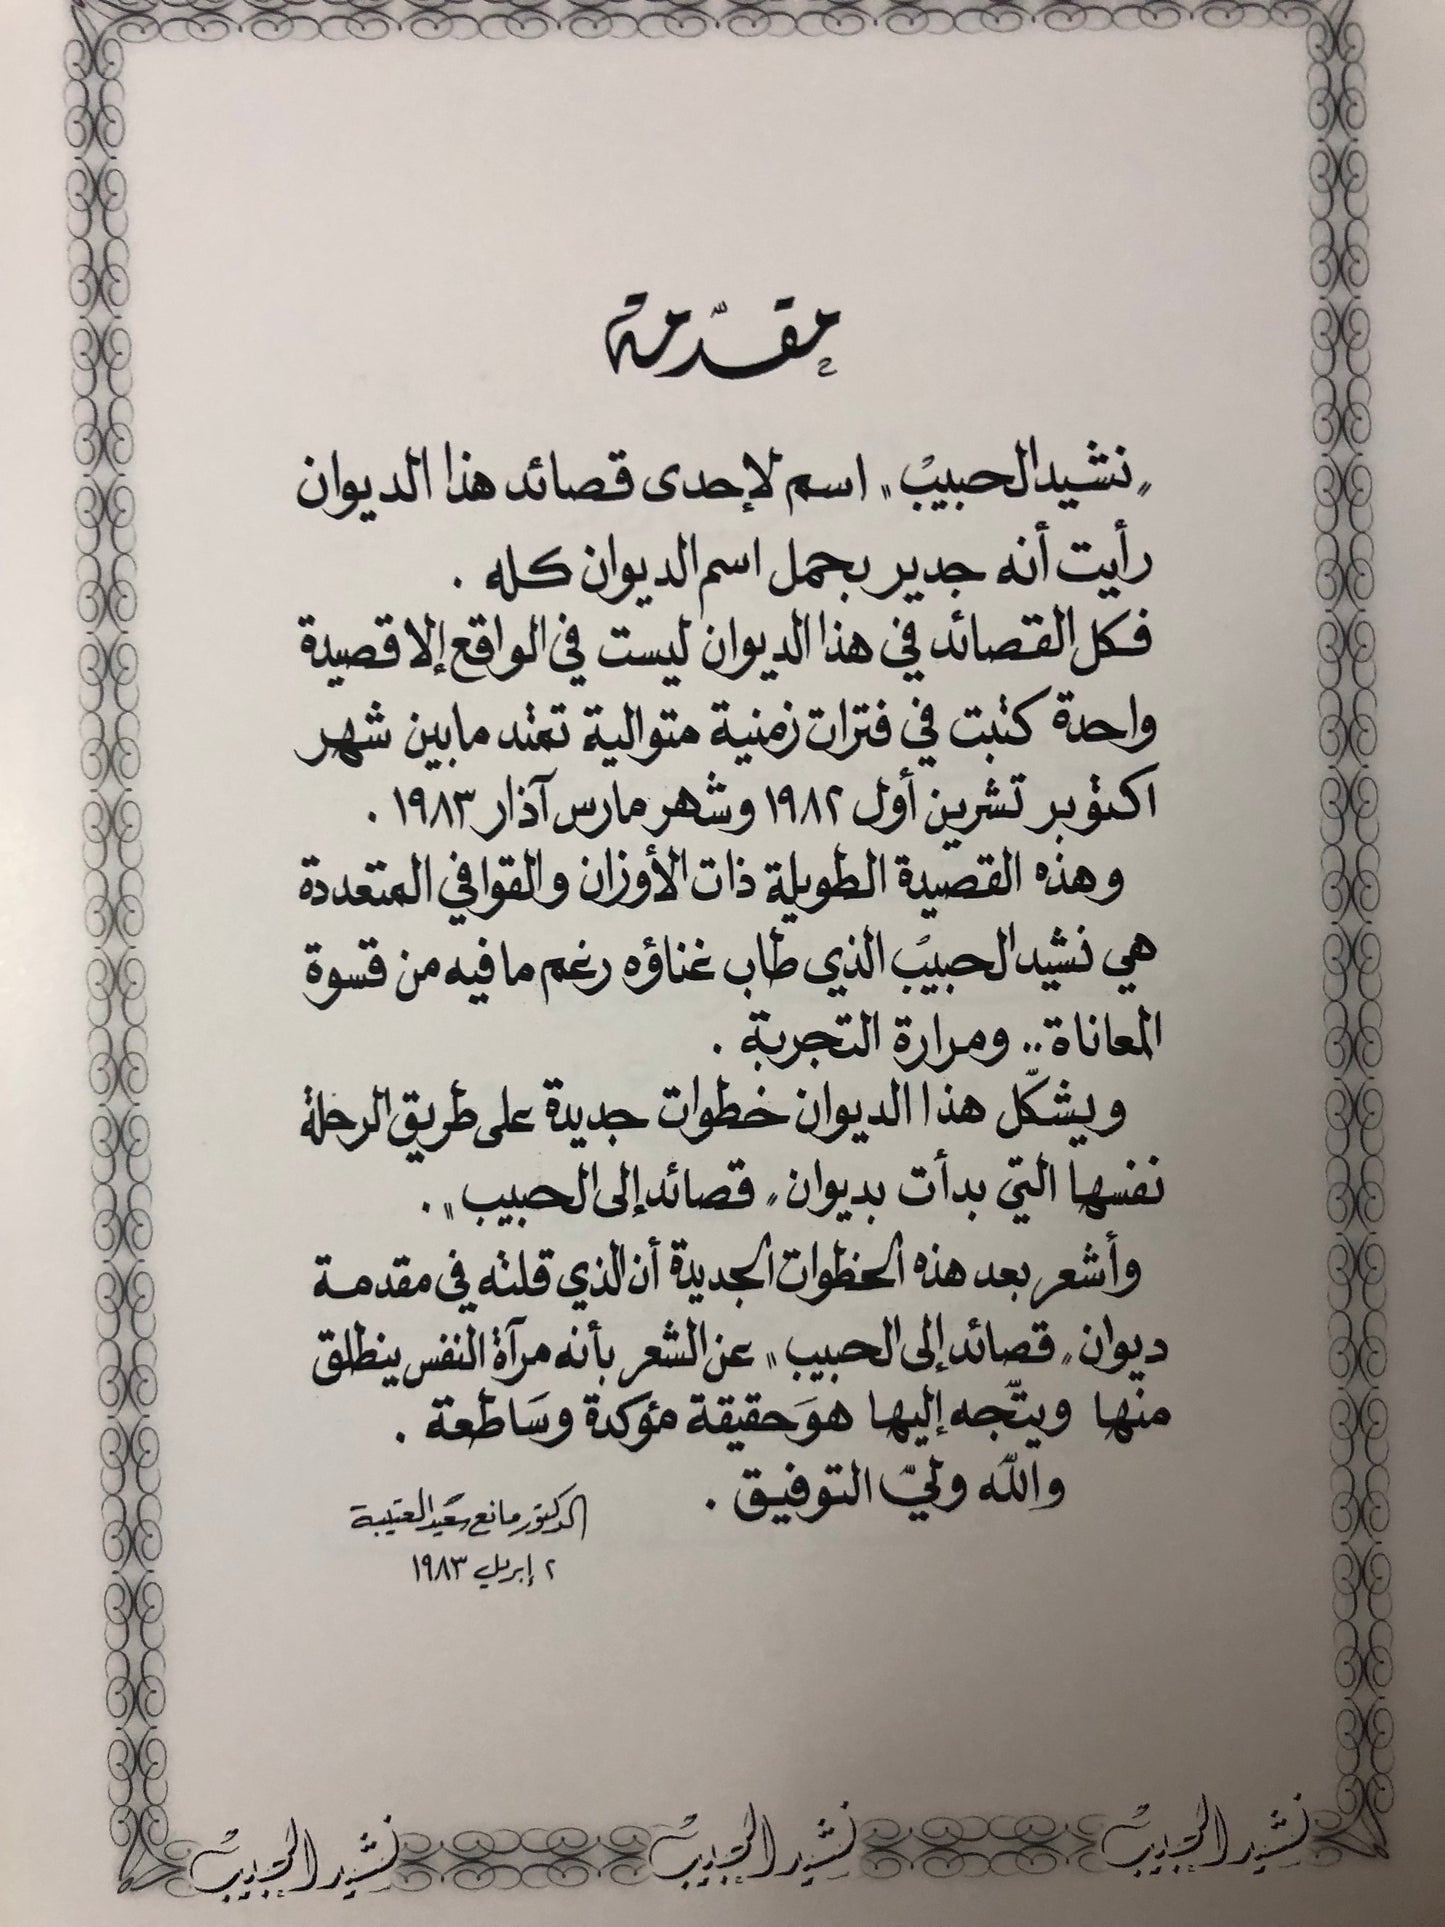 مقدّمة
"نشيد الحبيب" اسم لإحدى قصائد هذا الديوان
رأيت أنه جدير بحمل اسم الديوان كله .
فكل القصائد في هذا الديوان ليست في الواقع إلا قصيدة
واحدة كتبت في فترات زمنية متوالية تمتد ما بين شهر
اكتوبر تشرين أول ١٩٨٢ وشهر مارس آذار ١٩٨٣ .
وهذه القصيدة الطويلة ذات الأوزان والقوافي المتعددة
هي نشيد الحبيب الذي طاب غناؤه رغم ما فيه من قسوة
المعاناة .. ومرارة التجربة .
ويشكّل هذا الديوان خطوات جديدة على طريق الرحلة
نفسها التي بدأت بديوان "قصائد إلى الحبيب" .
وأشعر بعد هذه الخطوات الجديدة أن الذي قلته في مقدمة
ديوان "قصائد إلى الحبيب" عن الشعر بأنه مرآة النفس ينطلق
منها ويتّجه إليها هوَ حقيقة مؤكدة وسَاطعة .
والله وليّ التوفيق .
الدكتور مانع سعيد العتيبة
٢ إبريل ١٩٨٣
نشيد الحبيب نشيد الحبيب نشيد الحبيب